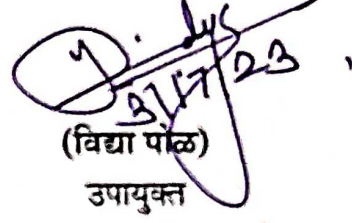 31/7/23
(विद्या पोळ)
उपायुक्त